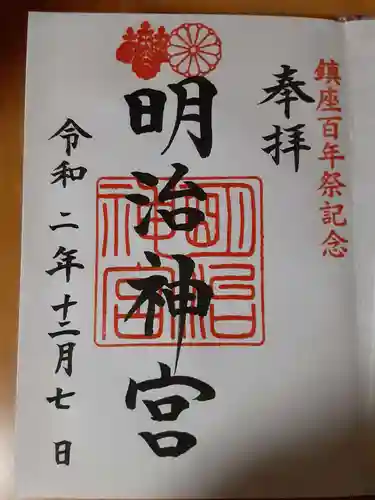 鎮座百年祭記念
奉拝
明治神宮
明治神宮
令和二年十二月七日